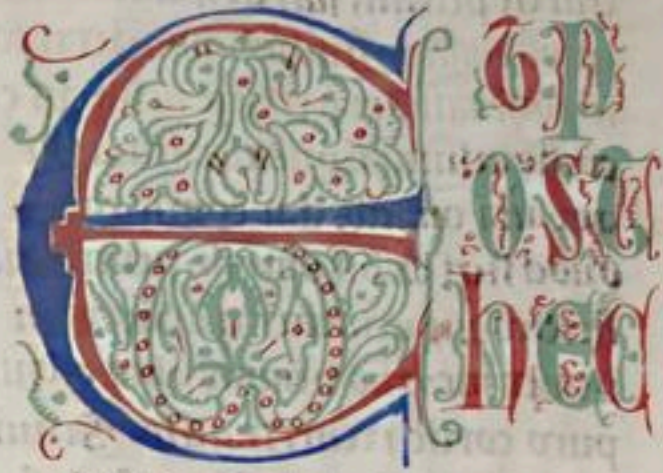 Et p
ost
hec